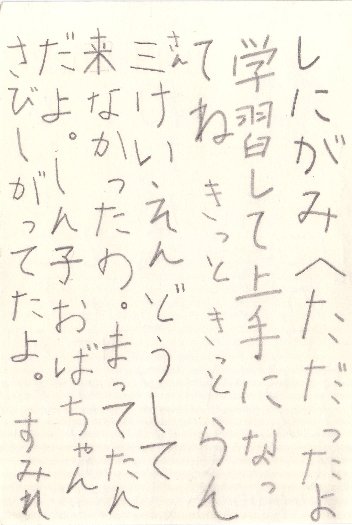 しにがみへただったよ
学習して上手になっ
てね きっと きっと らん
三けいえんどうして
さん
来なかったの。まってたん
だよ。しん子おばちゃん
さびしがってたよ。 すみれ